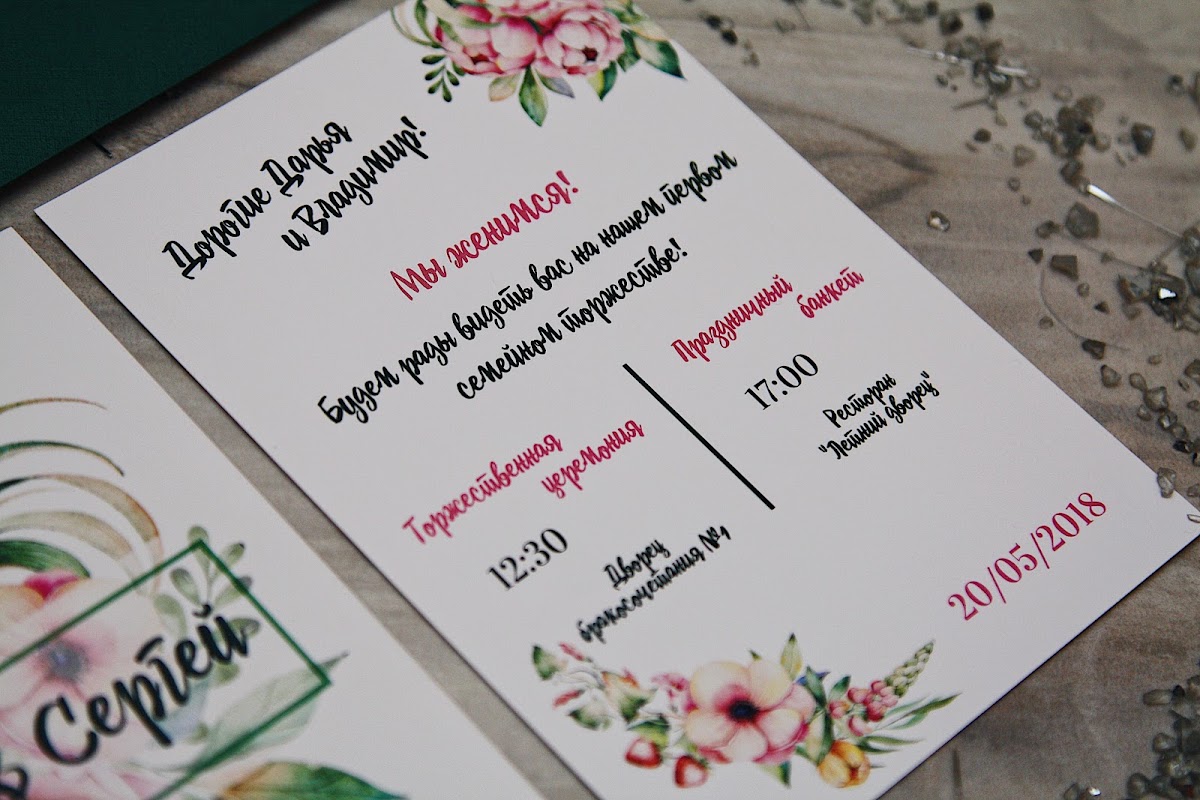 Дорогие Дарья
и Владимир!
Мы женимся!
Будем рады видеть вас на нашем первом
семейном торжестве!
Торжественная
церемония
12:30
Дворец
бракосочетания №1
Праздничный
банкет
17:00
Ресторан
"Летний дворец"
20/05/2018
Сергей